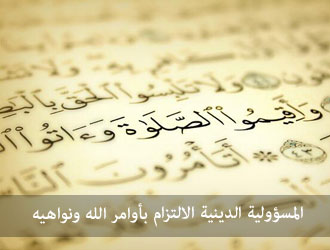 وَلَا تَلْبِسُوا۟ ٱلْحَقَّ بِٱلْبَـٰطِ
وَأَقِيمُوا۟ ٱلصَّلَوٰةَ وَءَاتُوا۟
٤٣ أَتَأْمُرُونَ ٱلنَّاسَ
المسؤولية الدينية الالتزام بأوامر الله ونواهيه